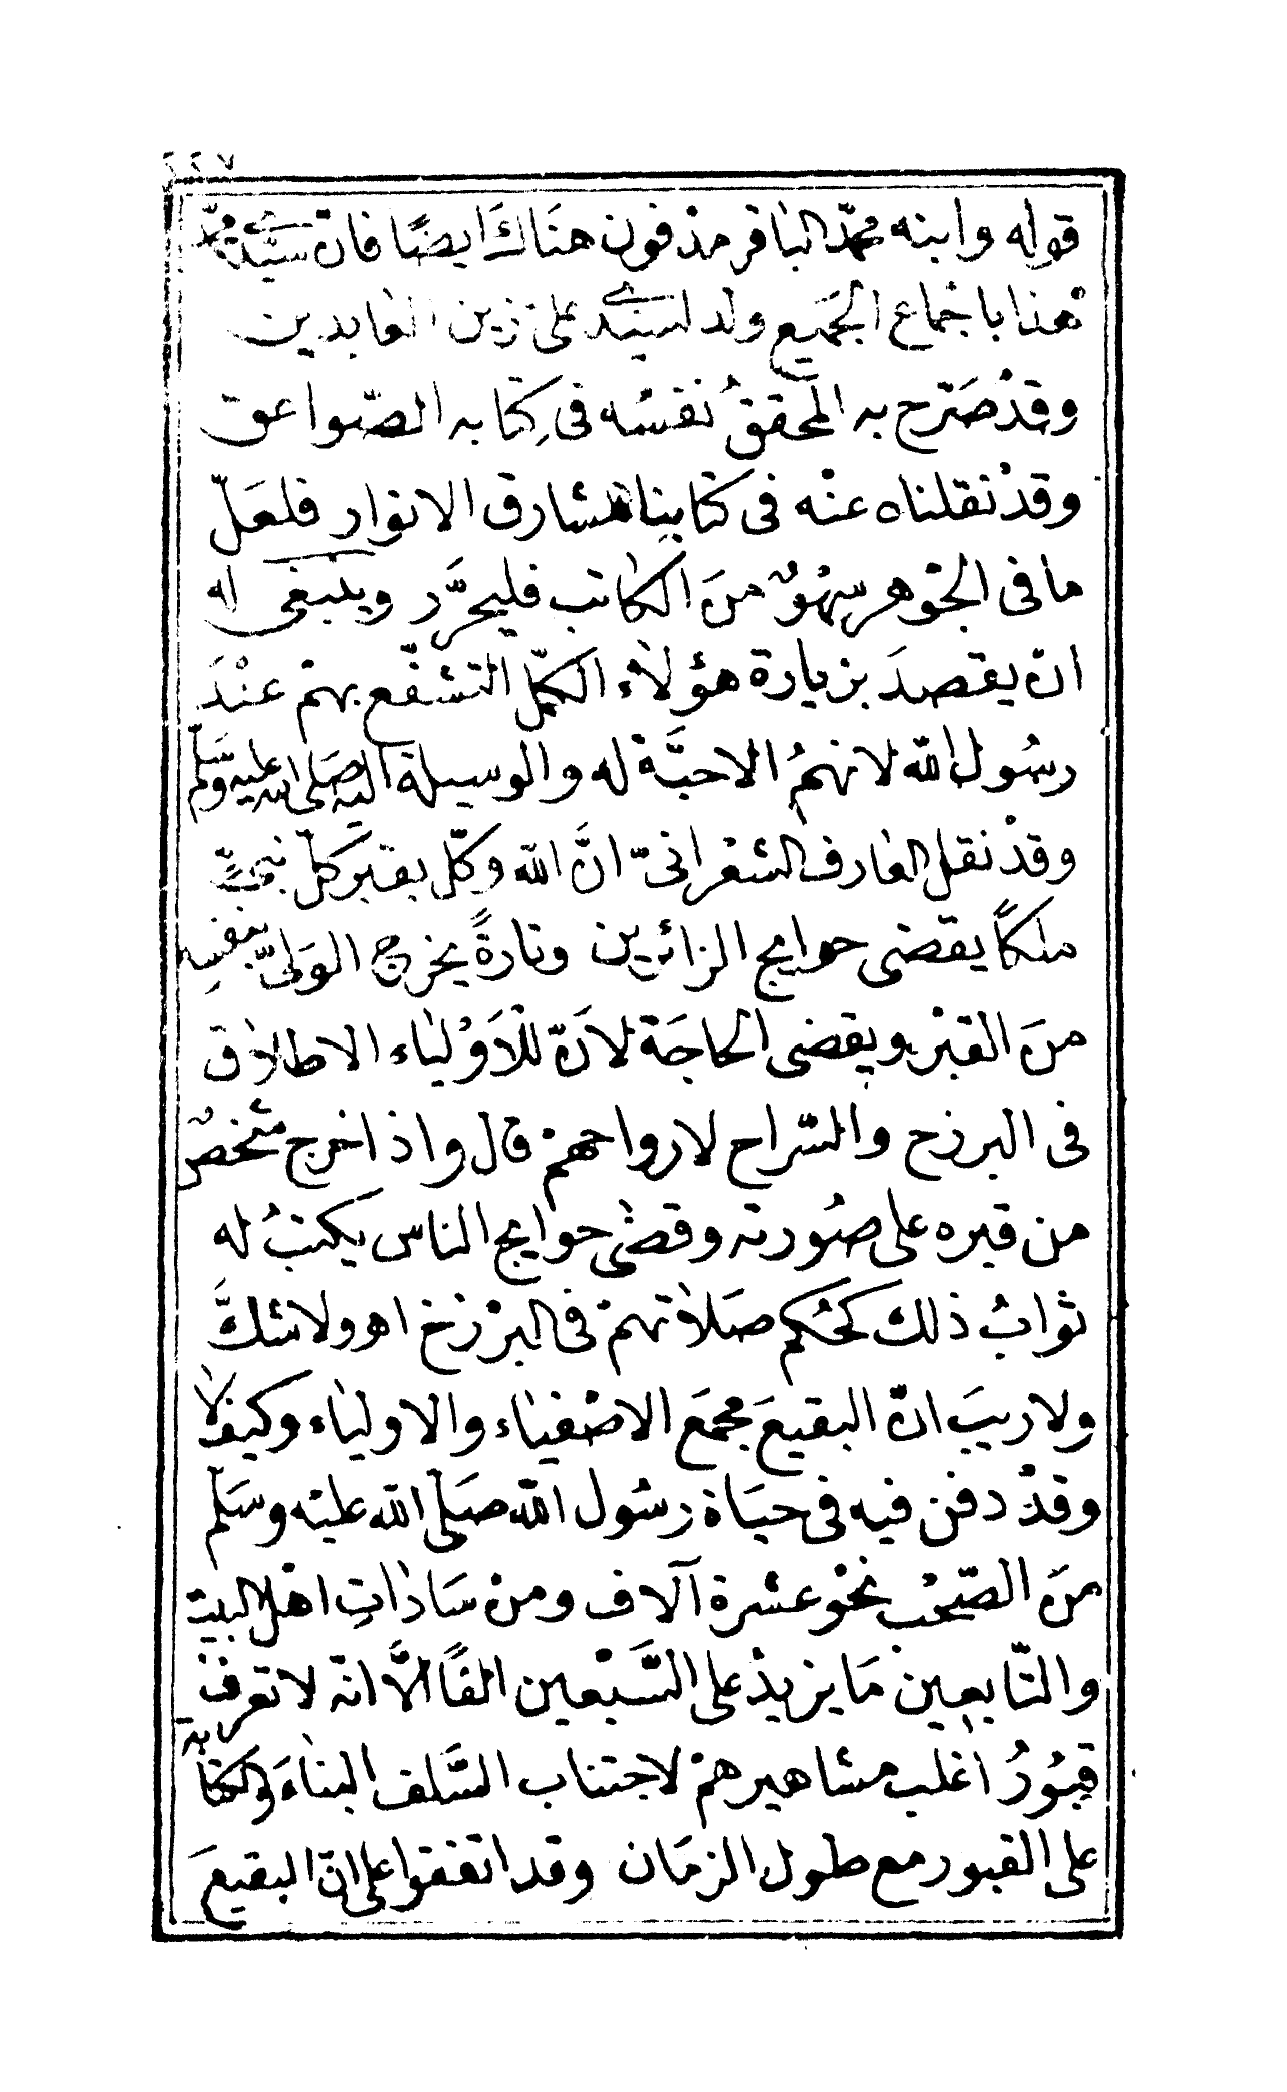 قوله وابنه محمّد الباقر مدفون هنَاكَ ايضًا فانّ سيّدى محمّد
هذا باجماع الجَميع ولد لسيّدى على زين العابدين
وقدْ صَرّح به المحَقق نفسُه فى كِتابه الصّواعق
وقدْ نقلناه عنْه فى كتابنا مشارق الانوار فلعَلّ
ما فى الجَوْهر سهْوٌ منَ الكاتب فليحرَّر وينبغى له
انّ يقصدَ بزيارة هؤلاء الكمّل التشفّع بهمْ عنْدَ
رسُول اللّه لانهمُ الاحبَّة له والوسيلة اليه صَلى الله عليه وسلّم
وقدْ نقل العارف الشعْرانىّ انَّ اللّه وكّل بقبر كلّ نبىّ
ملكًا يقضى حوايج الزائرين وتارةً يخرج الوَلىّ بنفسِه
منَ القبْر ويقضى الحاجَة لانّ للاَوْلياء الاطلاق
فى البرزخ والسّراح لارواحهمْ قال واذا خرج شخصٌ
من قبره على صُورته وقضٰى حوايج الناس يكتبُ له
ثوابُ ذلك كحُكم صَلاتهمْ فى البرْزخ اهـ ولا شكَّ
ولا ريبَ انّ البقيعَ مجمَع الاصْفياء والاولياء وكيف لا
وقدْ دفن فيه فى حيَاة رسُول اللّه صَلى اللّه عليْه وسَلّم
منَ الصّحْب نحْو عشرة آلاف ومنْ سَاداتِ اهْل البيت
والتّابعِين مَا يزيدْ على السَّبْعين الفًا الاَّ انّه لا تعْرف
قبُورُ اغلب مشاهيرهمْ لاجتناب السَّلف البناءَ والكتابة
على القبور مع طول الزمَان وقد اتفقوا على انّ البقيعَ